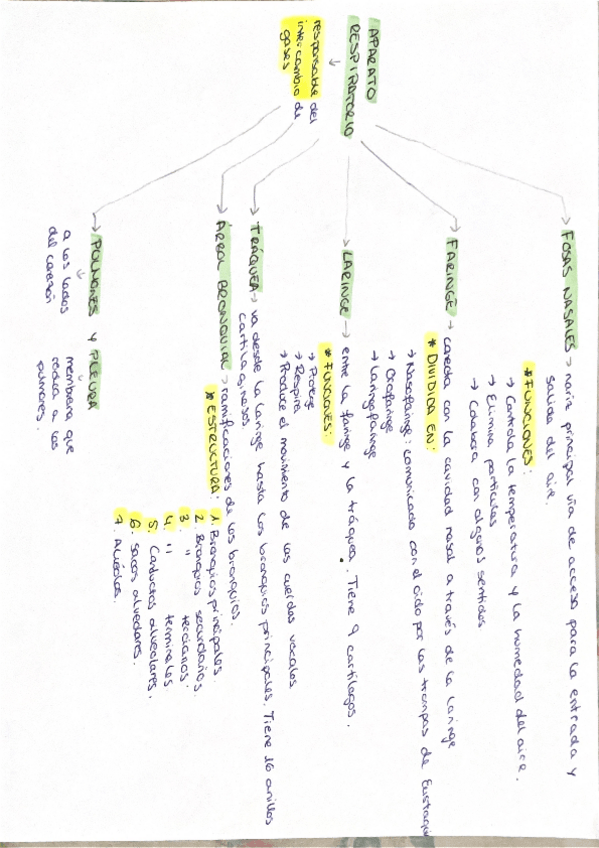 APARATO
RESPIRATORIO
responsable del
intercambio de
gases
FOSAS NASALES → nariz principal vía de acceso para la entrada y
salida del aire.
* FUNCIONES:
→ Controla la temperatura y la humedad del aire.
→ Elimina partículas
→ Colabora con algunos sentidos
FARINGE → conecta con la cavidad nasal a través de la laringe
* DIVIDIDA EN:
→ Nasofaringe: comunicada con el oído por las trompas de Eustaquio
→ Orofaringe
→ Laringofaringe
LARINGE → entre la faringe y la tráquea. Tiene 9 cartílagos.
* FUNCIONES:
→ Protege
→ Respira
→ Produce el movimiento de las cuerdas vocales
TRÁQUEA → va desde la laringe hasta los bronquios principales. Tiene 16 anillos
cartilaginosos
ÁRBOL BRONQUIAL → ramificaciones de los bronquios.
* ESTRUCTURA: 1. Bronquios principales.
2. Bronquios secundarios.
3. " terciarios.
4. " terminales.
5. Conductos alveolares.
6. Sacos alveolares.
7. Alvéolos.
PULMONES Y PLEURA
a los lados
del corazón
membrana que
rodea a los
pulmones.